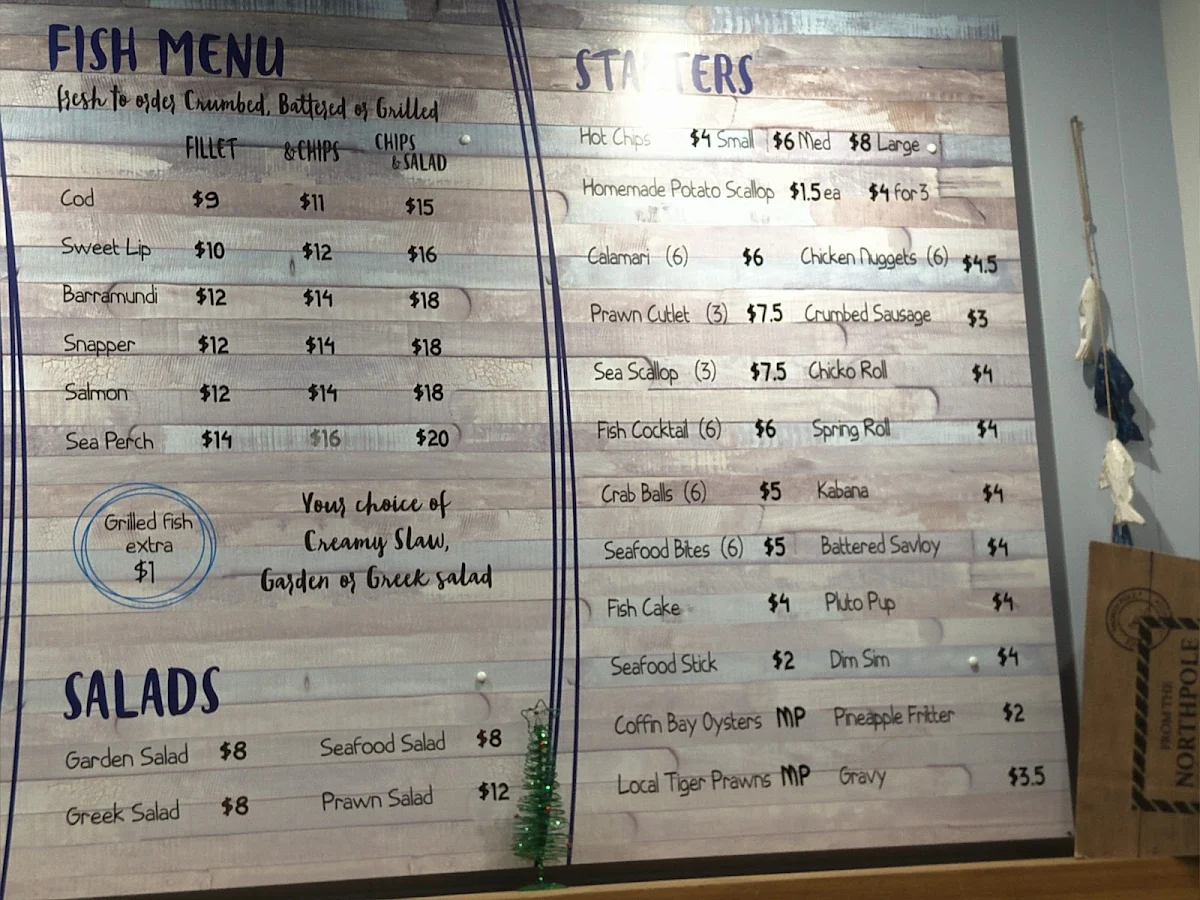 FISH MENU
fresh to order Crumbed, Battered or Grilled
FILLET & CHIPS CHIPS & SALAD
Cod $9 $11 $15
Sweet Lip $10 $12 $16
Barramundi $12 $14 $18
Snapper $12 $14 $18
Salmon $12 $14 $18
Sea Perch $14 $16 $20
Grilled fish
extra
$1
Your choice of
Creamy Slaw,
Garden or Greek salad
SALADS
Garden Salad $8 Seafood Salad $8
Greek Salad $8 Prawn Salad $12
STARTERS
Hot Chips $4 Small $6 Med $8 Large
Homemade Potato Scallop $1.5 ea $4 for 3
Calamari (6) $6 Chicken Nuggets (6) $4.5
Prawn Cutlet (3) $7.5 Crumbed Sausage $3
Sea Scallop (3) $7.5 Chicko Roll $4
Fish Cocktail (6) $6 Spring Roll $4
Crab Balls (6) $5 Kabana $4
Seafood Bites (6) $5 Battered Savloy $4
Fish Cake $4 Pluto Pup $4
Seafood Stick $2 Dim Sim $4
Coffin Bay Oysters MP Pineapple Fritter $2
Local Tiger Prawns MP Gravy $3.5
FROM THE
NORTHPOLE